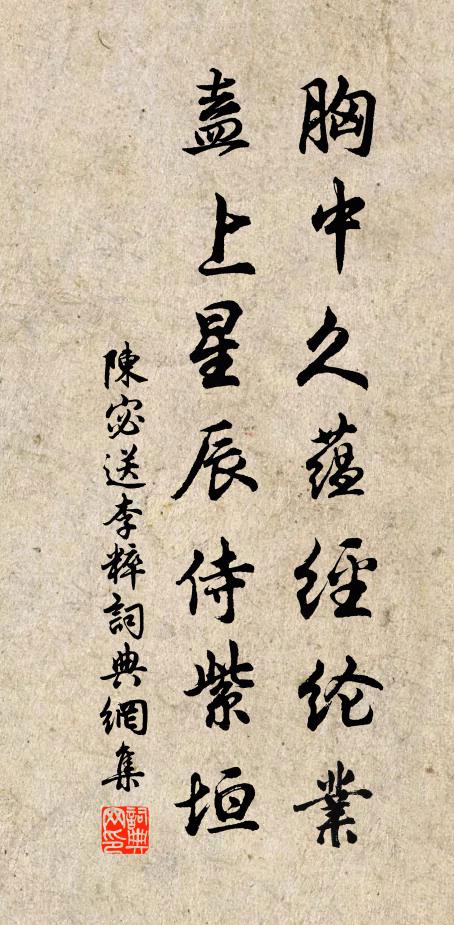 胸中久蘊經纶業
盍上星辰侍紫垣
陳宓送李粹詞典網集
詞典网印